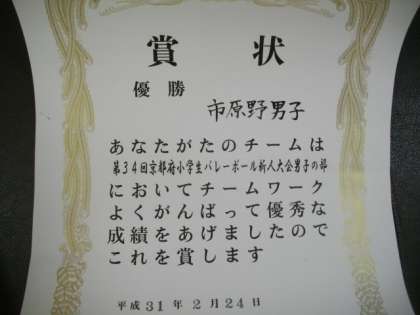 賞状
優勝
市原野男子
あなたがたのチームは
第34回京都府小学生バレーボール新人大会男子の部
においてチームワーク
よくがんばって優秀な
成績をあげましたので
これを賞します
平成31年2月24日